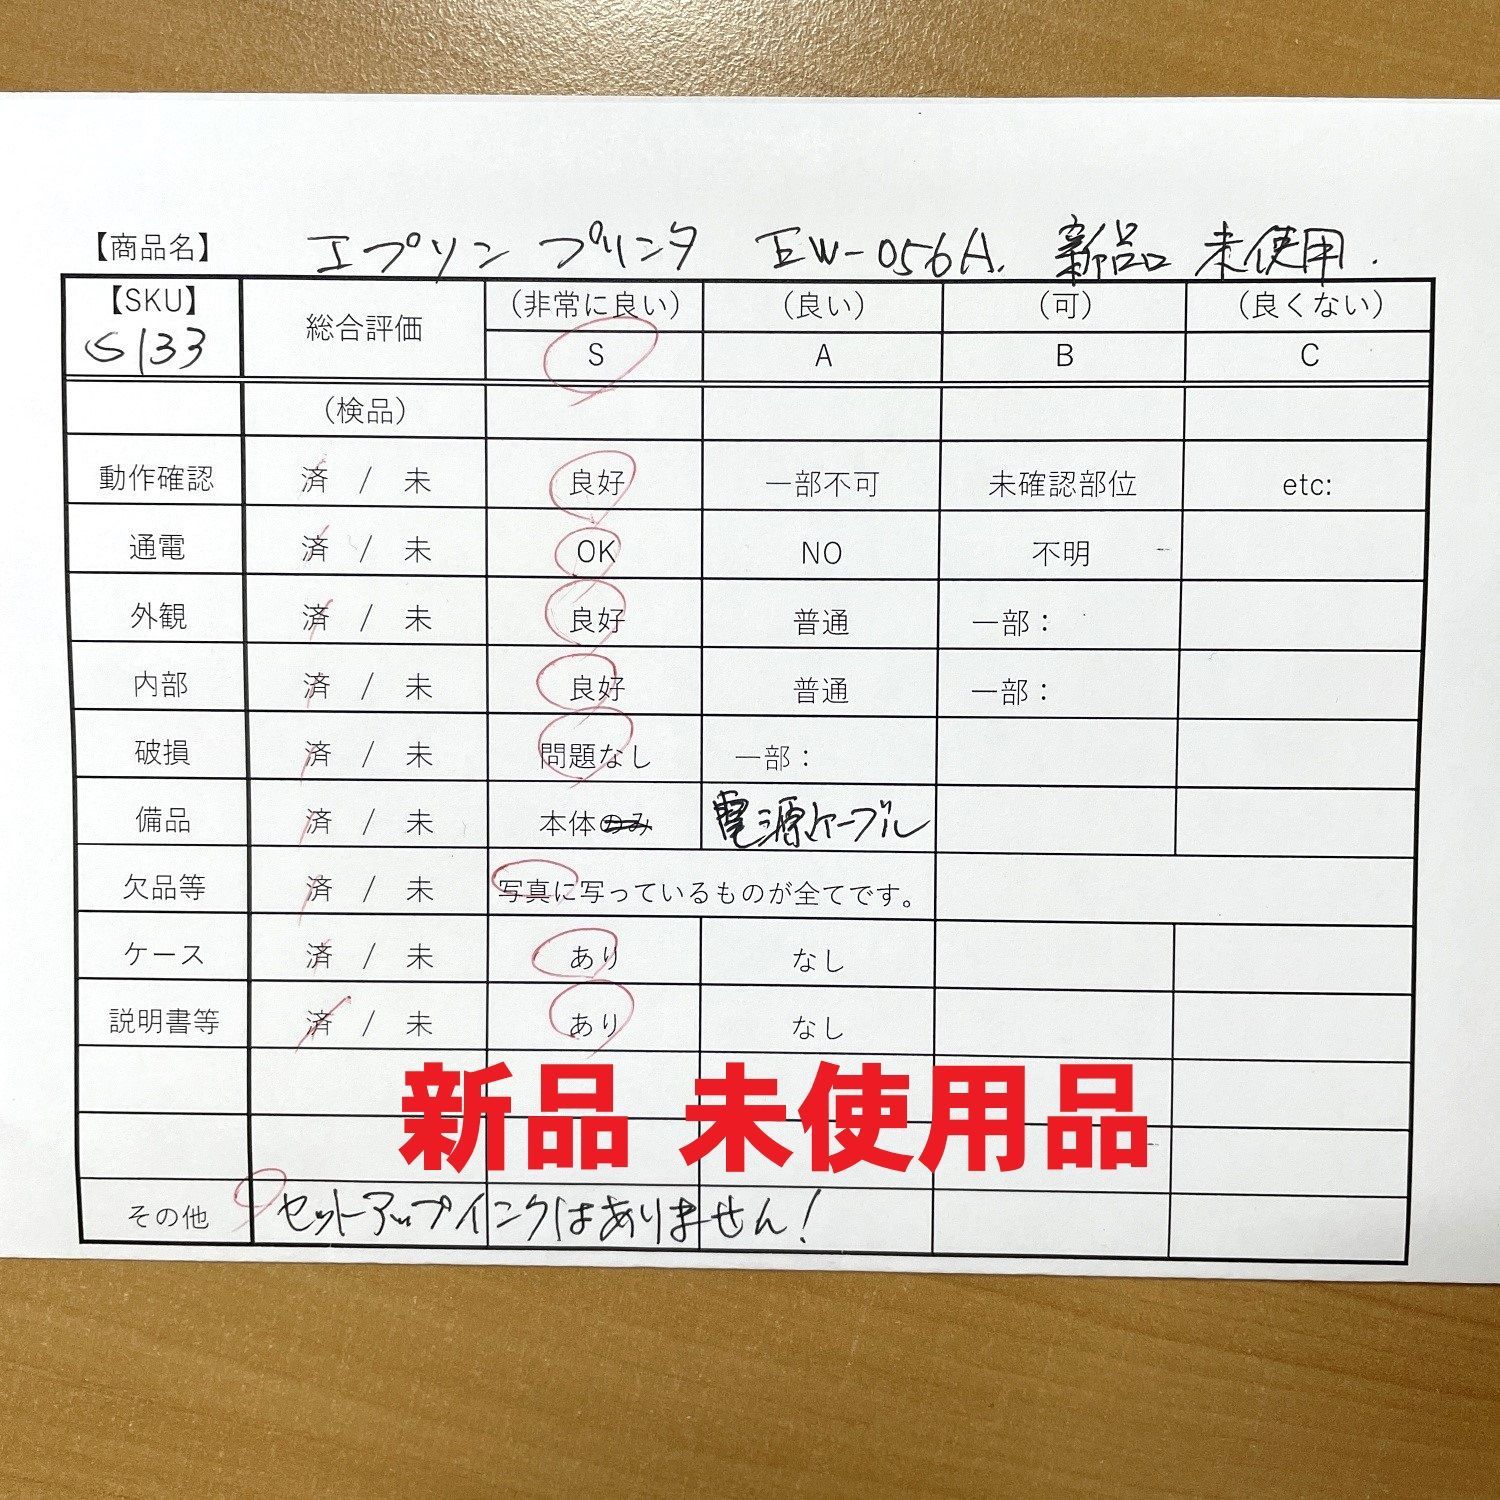 【商品名】 エプソン プリンタ EW-056A. 新品 未使用.
【SKU】 総合評価 (非常に良い) (良い) (可) (良くない)
S133 S A B C
(検品)
動作確認 済 / 未 良好 一部不可 未確認部位 etc:
通電 済 / 未 OK NO 不明
外観 済 / 未 良好 普通 一部:
内部 済 / 未 良好 普通 一部:
破損 済 / 未 問題なし 一部:
備品 済 / 未 本体のみ 電源ケーブル
欠品等 済 / 未 写真に写っているものが全てです。
ケース 済 / 未 あり なし
説明書等 済 / 未 あり なし
新品 未使用品
その他 セットアップインクはありません!